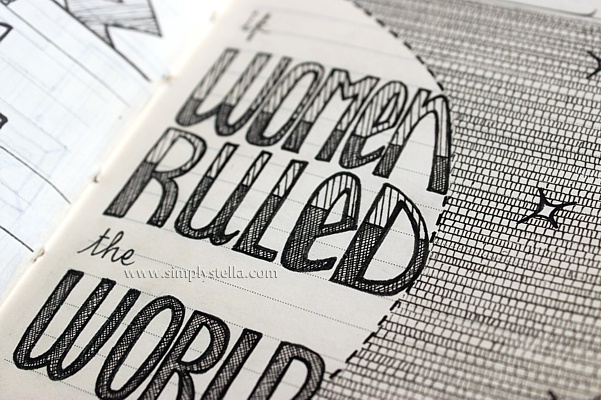 if
WOMeN
RULeD
the
www.simplystella.com
WORLD